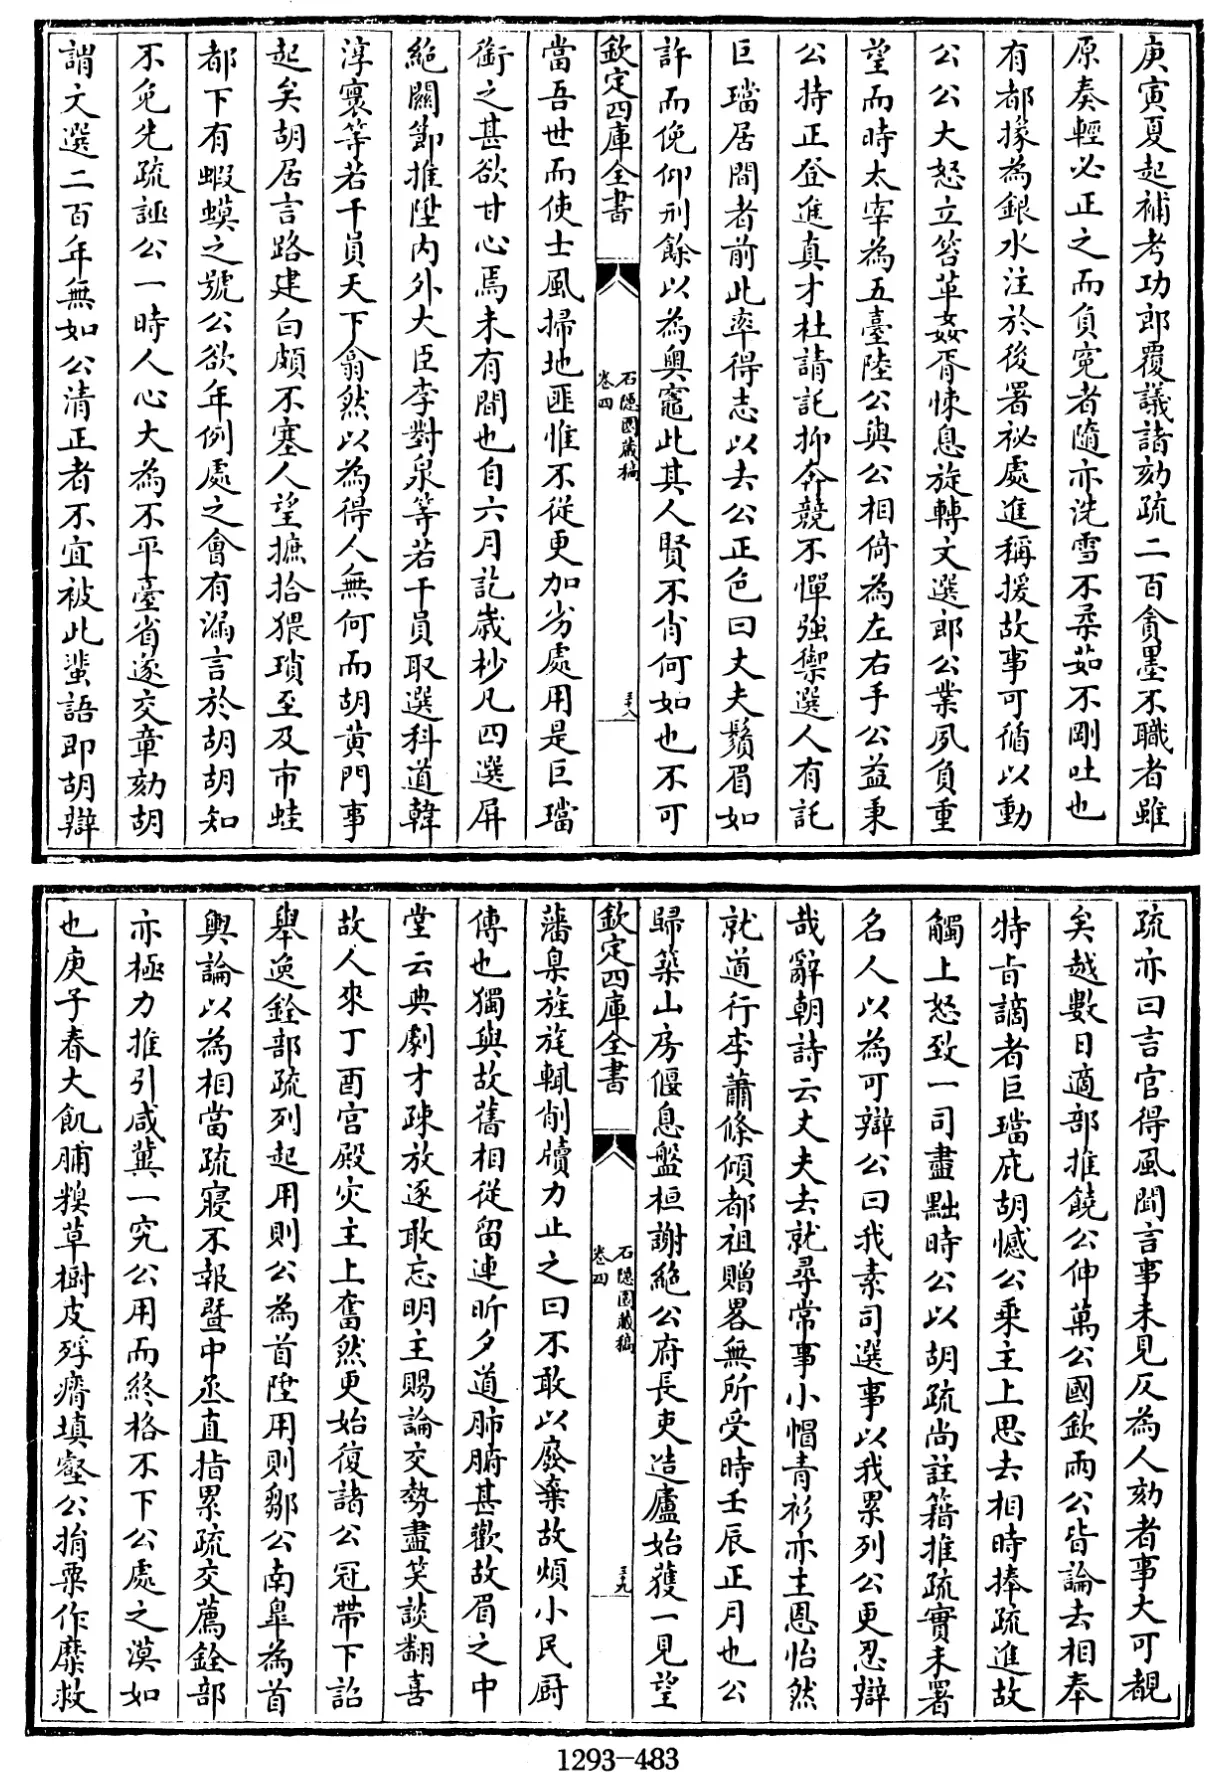 庚寅夏起補考功郎覆議諸劾疏二百貪墨不職者雖
原奏輕必正之而負寃者隨亦洗雪不柔茹不剛吐也
有都掾為銀水注於後署祕處進稱援故事可循以動
公公大怒立笞革姦胥悚息旋轉文選郎公業夙負重
望而時太宰為五臺陸公與公相倚為左右手公益秉
公持正登進真才杜請託抑奔競不憚強禦選人有託
巨璫居間者前此率得志以去公正色曰丈夫鬚眉如
許而俛仰刑餘以為奧竈此其人賢不肖何如也不可
欽定四庫全書
石隱園藏稿
卷四
三十八
當吾世而使士風掃地匪惟不從更加劣處用是巨璫
銜之甚欲甘心焉未有間也自六月訖歲杪凡四選屏
絶關節推陞内外大臣李對泉等若干員取選科道韓
淳寰等若干員天下翕然以為得人無何而胡黄門事
起矣胡居言路建白頗不塞人望摭拾猥瑣至及市蛙
都下有蝦蟆之號公欲年例處之會有漏言於胡胡知
不免先疏誣公一時人心大為不平臺省遂交章劾胡
謂文選二百年無如公清正者不宜被此蜚語即胡辯
疏亦曰言官得風聞言事未見反為人劾者事大可覩
矣越數日適部推饒公伸萬公國欽兩公皆論去相奉
特㫖謫者巨璫庇胡憾公乘主上思去相時捧疏進故
觸上怒致一司盡黜時公以胡疏尚註籍推疏實未署
名人以為可辯公曰我素司選事以我累列公更忍辯
哉辭朝詩云丈夫去就尋常事小帽青衫亦主恩怡然
就道行李蕭條傾都祖贈畧無所受時壬辰正月也公
歸築山房偃息盤桓謝絶公府長吏造廬始獲一見望
欽定四庫全書
石隱園藏稿
卷四
三十九
藩臬旌旄輒削牘力止之曰不敢以廢棄故煩小民厨
傳也獨與故舊相從留連昕夕道肺腑甚歡故眉之中
堂云典劇才疎放逐敢忘明主賜論交勢盡笑談翻喜
故人來丁酉宫殿灾主上奮然更始復諸公冠帶下詔
舉逸銓部疏列起用則公為首陞用則鄒公南臯為首
輿論以為相當疏寢不報暨中丞直指累疏交薦銓部
亦極力推引咸冀一究公用而終格不下公處之漠如
也庚子春大飢脯糗草樹皮殍瘠填壑公捐粟作糜救
1293—483